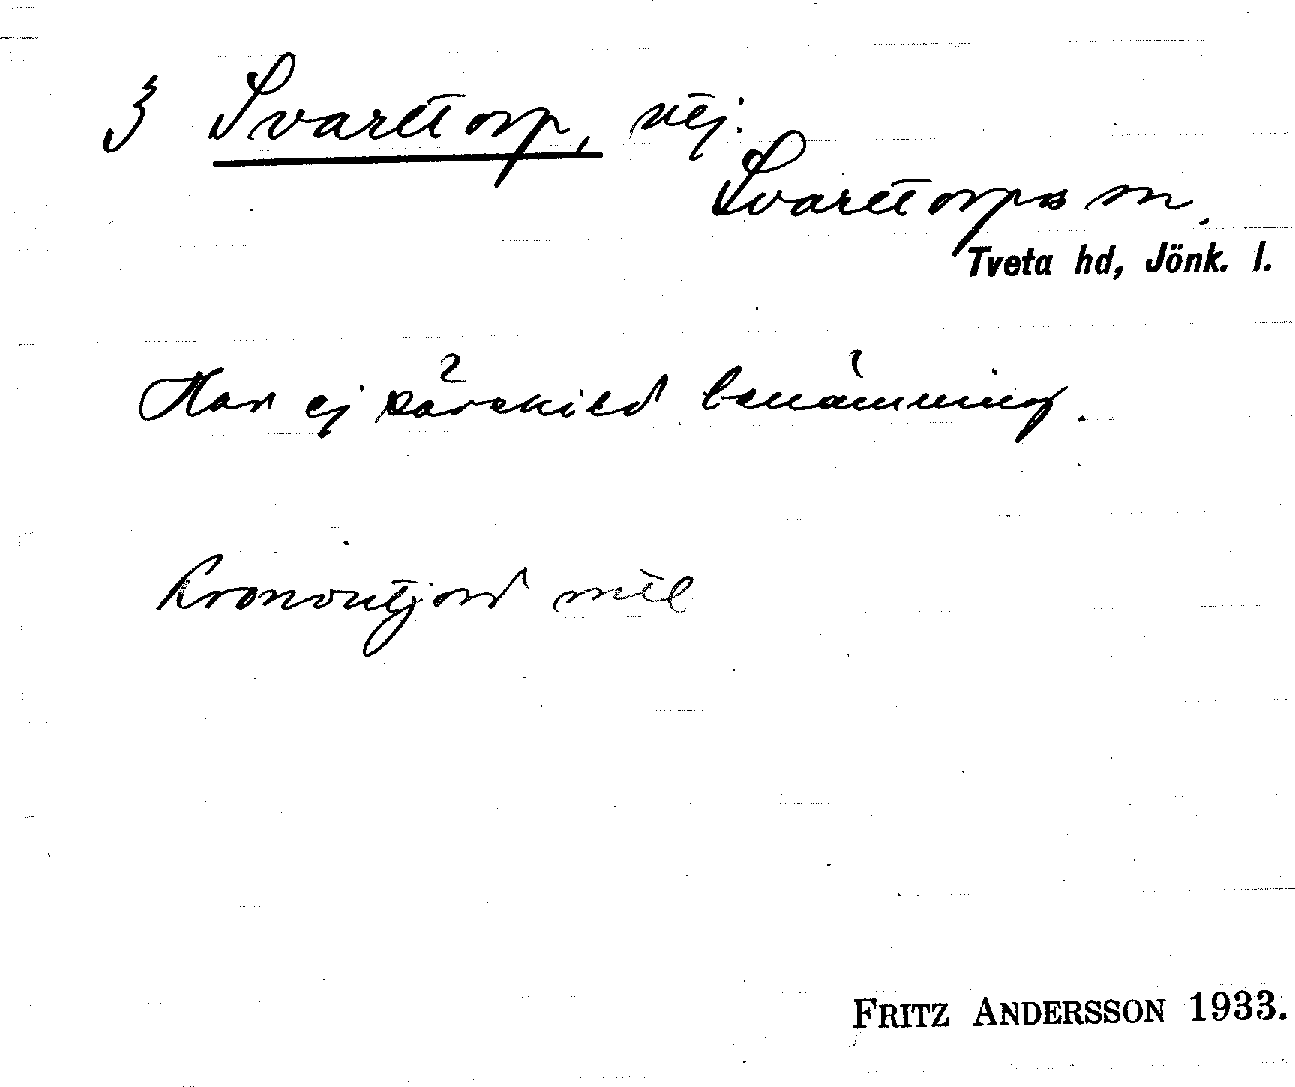 3 Svarttorp, utj.
Svarttorps sn.
Tveta hd, Jönk. l.
Har ej särskild benämning.
Kronoutjord mtl
FRITZ ANDERSSON 1933.